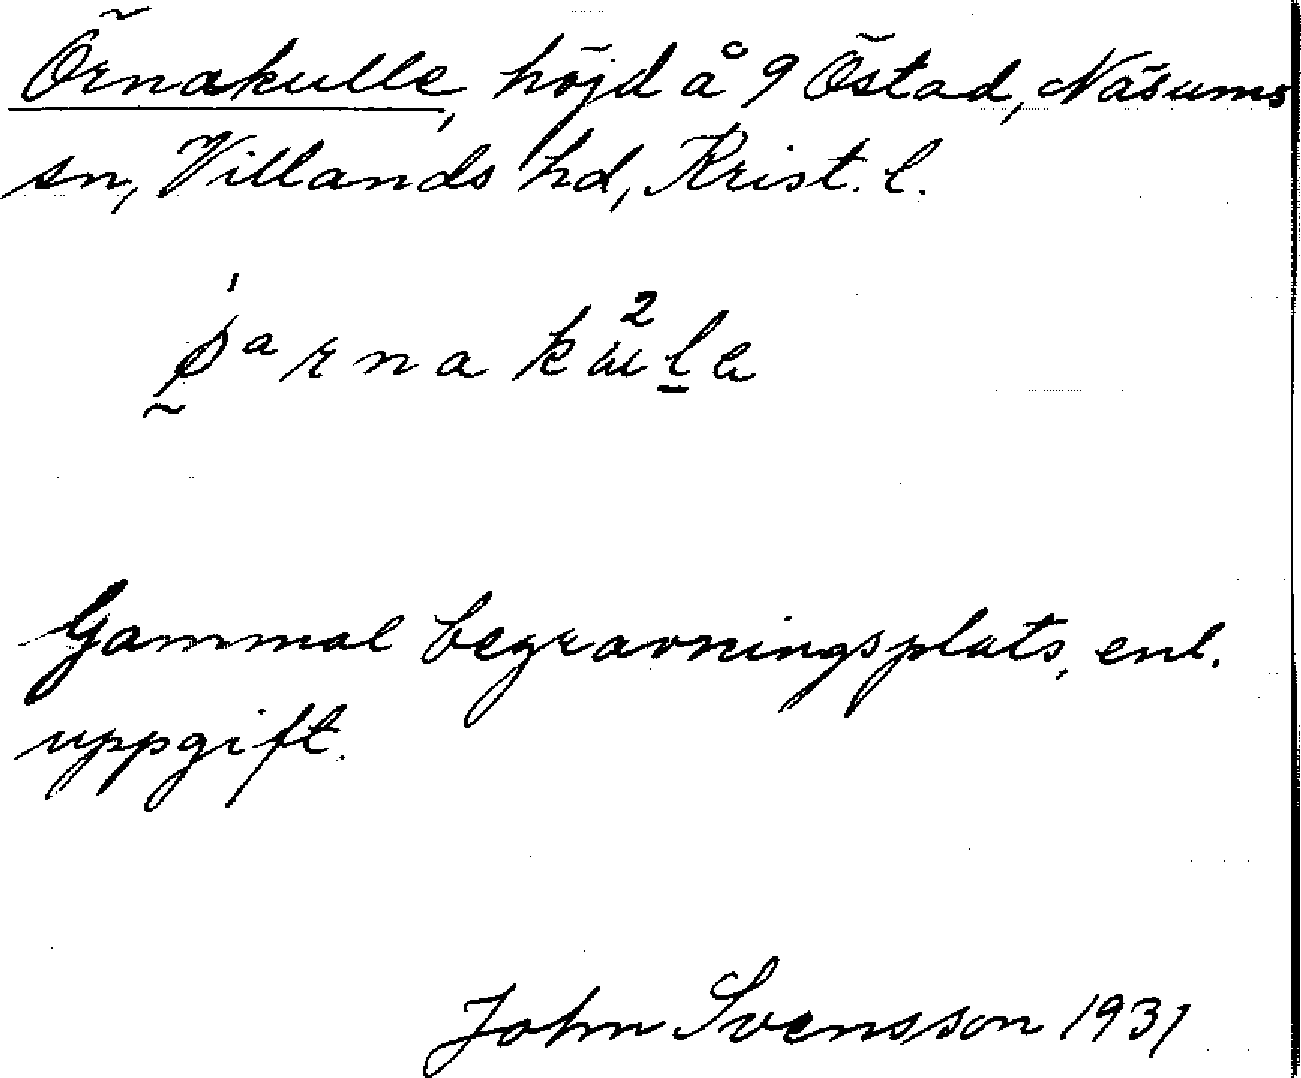 Örnakulle, höjd å 9 Östad, Näsums
sn, Villands hd, Krist. l.
Gammal begravningsplats, enl.
uppgift.
John Svensson 1931